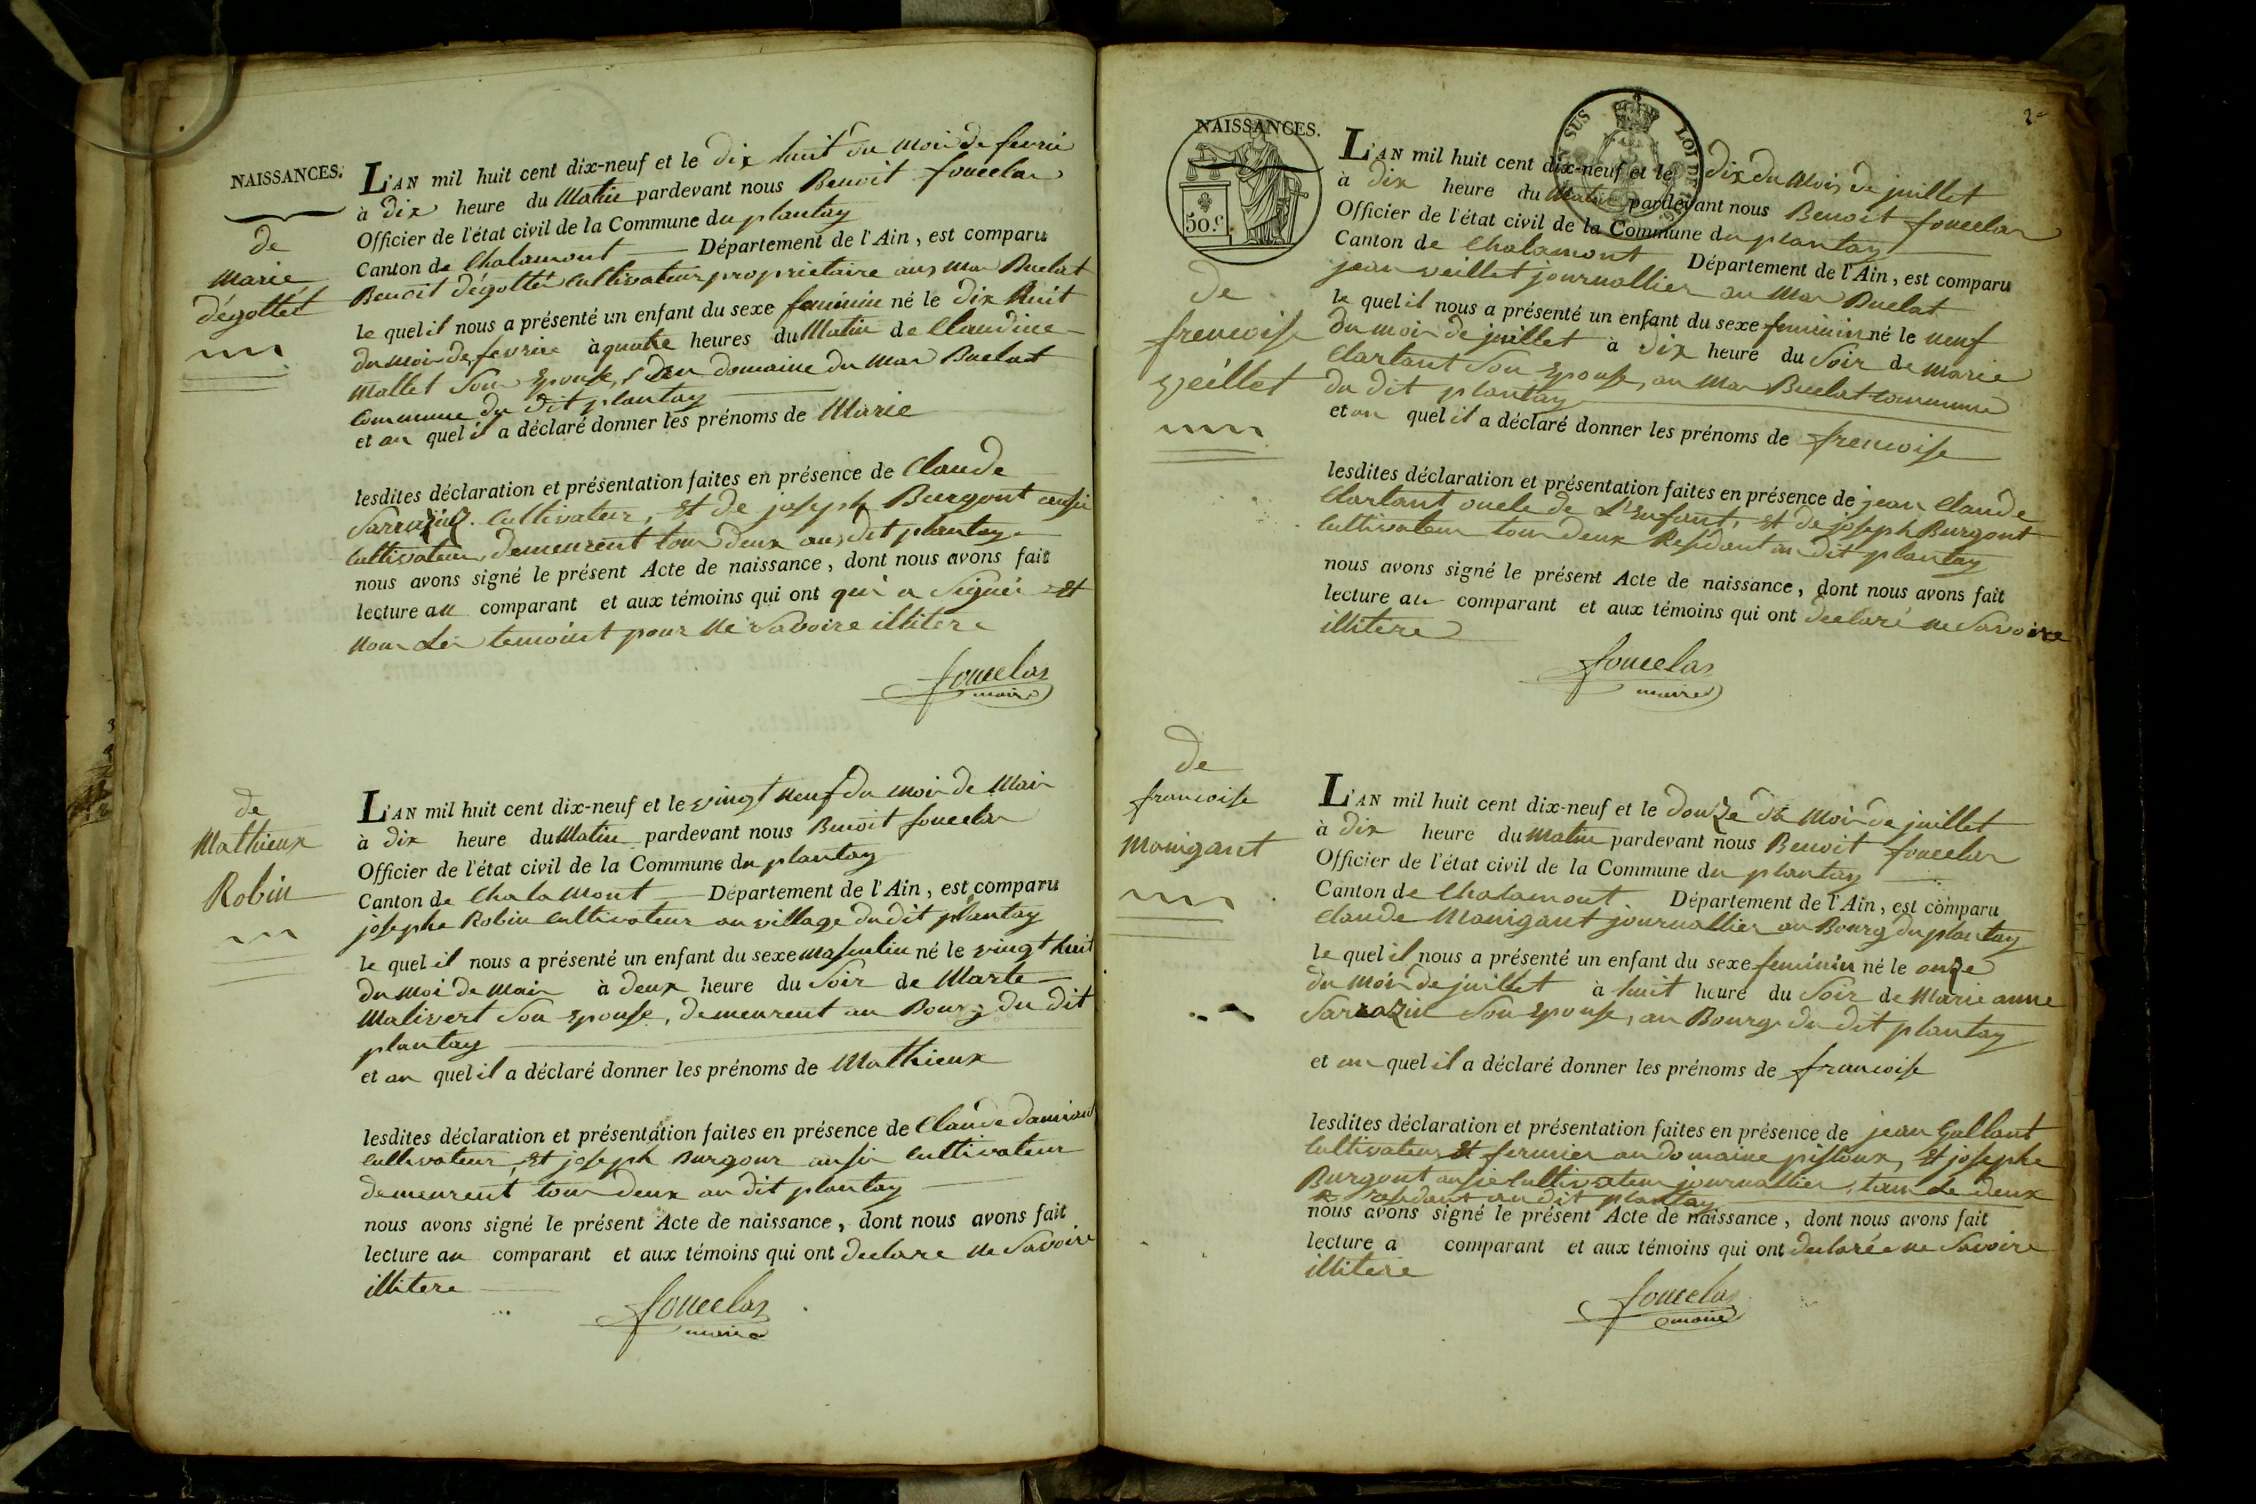 NAISSANCES.
de
Marie
dégottet
L'AN mil huit cent dix-neuf et le dix huit du moi de fevrie
à dix heure du Matin pardevant nous Benoit foucelas
Officier de l'état civil de la Commune du plantay
Canton de Chalamont Département de l'Ain, est comparu
Benoit dégottet Cultivateur proprietaire aus Mas Buclat
le quel il nous a présenté un enfant du sexe feminin né le dix huit
du moi de fevrie à quatre heures du Matin de Claudine
Mallet Son Epouse, au domaine du Mas Buclat
Commune du dit plantay
et au quel il a déclaré donner les prénoms de Marie
lesdites déclaration et présentation faites en présence de Claude
Sarrazin Cultivateur, Et de joseph Burgont ausie
Cultivateur, demeurent tous deux aus dit plantay
nous avons signé le présent Acte de naissance, dont nous avons fait
lecture au comparant et aux témoins qui ont qui a Signéi Et
Non Les temoint pour Ne Savoire illitere
foucelas
maire
de
Mathieux
Robin
L'AN mil huit cent dix-neuf et le vingt neuf du moi de Mais
à dix heure du Matin pardevant nous Benoit foucelas
Officier de l'état civil de la Commune du plantay
Canton de Chalamont Département de l'Ain, est comparu
josephe Robin Cultivateur au village du dit plantay
le quel il nous a présenté un enfant du sexe masculin né le vingt huit
du moi de Mais à deux heure du Soir de Marte
Malivert Son Epouse, demeurent au Bourg du dit
plantay
et au quel il a déclaré donner les prénoms de Mathieux
lesdites déclaration et présentation faites en présence de Claude damians
Cultivateur Et joseph Burgont ausie Cultivateur
demeurent tous deux au dit plantay
nous avons signé le présent Acte de naissance, dont nous avons fait
lecture au comparant et aux témoins qui ont declare Ne Savoire
illitere
foucelas
maire
NAISSANCES.
50.c
SUS LOI DE
de
frencoise
veillet
L'AN mil huit cent dix-neuf et le dix du Mois de juillet
à dix heure du Matin pardevant nous Benoit foucelas
Officier de l'état civil de la Commune du plantay
Canton de Chalamont Département de l'Ain, est comparu
jean veillet journallier au Mas Buclat
le quel il nous a présenté un enfant du sexe feminin né le neuf
du moi de juillet à dix heure du Soir de Marie
Clartant Son Epouse, au Mas Buclat Commune
du dit plantay
et au quel il a déclaré donner les prénoms de frencoise
lesdites déclaration et présentation faites en présence de jean Claude
Clartant oncle de L'Enfant, Et de joseph Burgont
Cultivateur tous deux Residant au dit plantay
nous avons signé le présent Acte de naissance, dont nous avons fait
lecture au comparant et aux témoins qui ont declaré ne Savoire
illitere
foucelas
maire
de
francoise
Manigant
L'AN mil huit cent dix-neuf et le douze du Moi de juillet
à dix heure du Matin pardevant nous Benoit foucelas
Officier de l'état civil de la Commune du plantay
Canton de Chalamont Département de l'Ain, est comparu
Claude Manigant journallier au Bourg du plantay
le quel il nous a présenté un enfant du sexe feminin né le onze
du Moi de juillet à huit heure du Soir de Marie anne
Sarrazin Son Epouse, au Bourg du dit plantay
et au quel il a déclaré donner les prénoms de francoise
lesdites déclaration et présentation faites en présence de jean Gallant
Cultivateur Et fermier au domaine pistoux, Et josephe
Burgont ausie Cultivateur journallier, tous Le deux
residant au dit plantay
nous avons signé le présent Acte de naissance, dont nous avons fait
lecture a comparant et aux témoins qui ont declarée ne Savoire
illitere
foucelas
maire